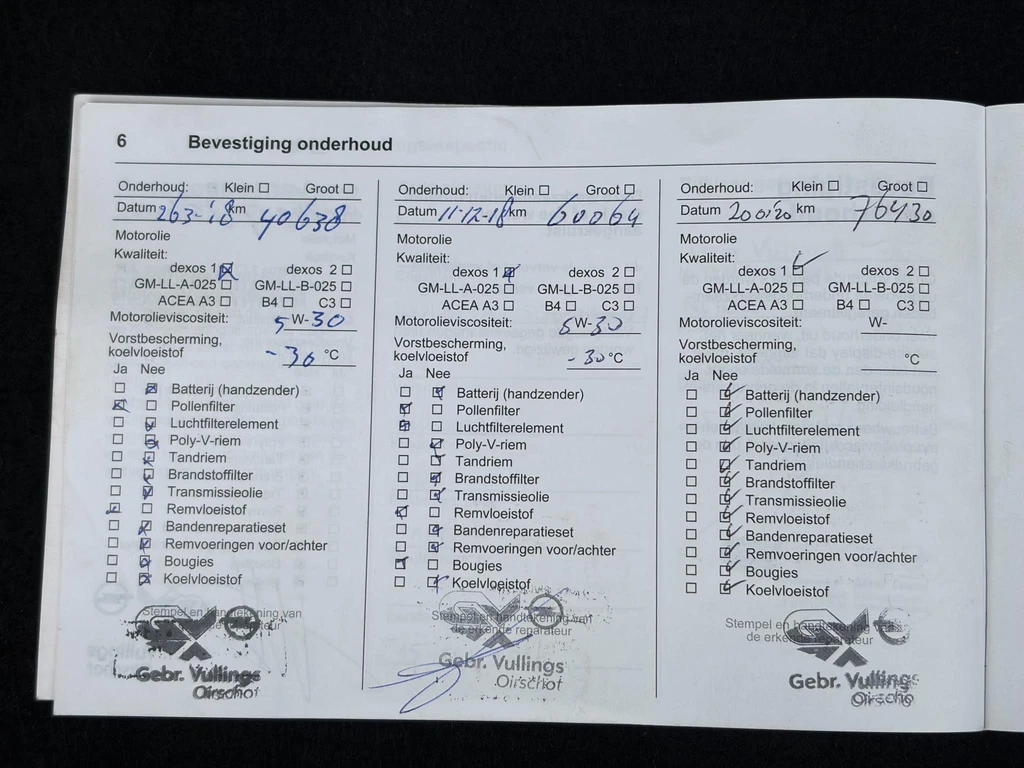 6 Bevestiging onderhoud
Onderhoud: Klein ☐ Groot ☐
Datum 263-'18 km 40638
Motorolie
Kwaliteit:
dexos 1 ☒ dexos 2 ☐
GM-LL-A-025 ☐ GM-LL-B-025 ☐
ACEA A3 ☐ B4 ☐ C3 ☐
Motorolieviscositeit: 5 W-30
Vorstbescherming,
koelvloeistof -30 °C
Ja Nee
☐ ☒ Batterij (handzender)
☒ ☐ Pollenfilter
☐ ☒ Luchtfilterelement
☐ ☒ Poly-V-riem
☐ ☒ Tandriem
☐ ☒ Brandstoffilter
☐ ☒ Transmissieolie
☒ ☐ Remvloeistof
☐ ☒ Bandenreparatieset
☐ ☒ Remvoeringen voor/achter
☐ ☒ Bougies
☐ ☒ Koelvloeistof
Stempel en handtekening van
Gebr. Vullings
Oirschot
Onderhoud: Klein ☐ Groot ☐
Datum 11-12-18 km 60064
Motorolie
Kwaliteit:
dexos 1 ☒ dexos 2 ☐
GM-LL-A-025 ☐ GM-LL-B-025 ☐
ACEA A3 ☐ B4 ☐ C3 ☐
Motorolieviscositeit: 5 W-30
Vorstbescherming,
koelvloeistof -30 °C
Ja Nee
☐ ☒ Batterij (handzender)
☒ ☐ Pollenfilter
☒ ☐ Luchtfilterelement
☐ ☒ Poly-V-riem
☐ ☒ Tandriem
☐ ☒ Brandstoffilter
☐ ☒ Transmissieolie
☒ ☐ Remvloeistof
☐ ☒ Bandenreparatieset
☐ ☒ Remvoeringen voor/achter
☒ ☐ Bougies
☐ ☒ Koelvloeistof
Stempel en handtekening van
de erkende reparateur
Gebr. Vullings
Oirschot
Onderhoud: Klein ☐ Groot ☐
Datum 20 01 '20 km 76430
Motorolie
Kwaliteit:
dexos 1 ☑ dexos 2 ☐
GM-LL-A-025 ☐ GM-LL-B-025 ☐
ACEA A3 ☐ B4 ☐ C3 ☐
Motorolieviscositeit: W-
Vorstbescherming,
koelvloeistof °C
Ja Nee
☐ ☑ Batterij (handzender)
☐ ☑ Pollenfilter
☐ ☑ Luchtfilterelement
☐ ☑ Poly-V-riem
☐ ☑ Tandriem
☐ ☑ Brandstoffilter
☐ ☑ Transmissieolie
☐ ☑ Remvloeistof
☐ ☑ Bandenreparatieset
☐ ☑ Remvoeringen voor/achter
☐ ☑ Bougies
☐ ☑ Koelvloeistof
Stempel en handtekening van
de erkende reparateur
Gebr. Vullings